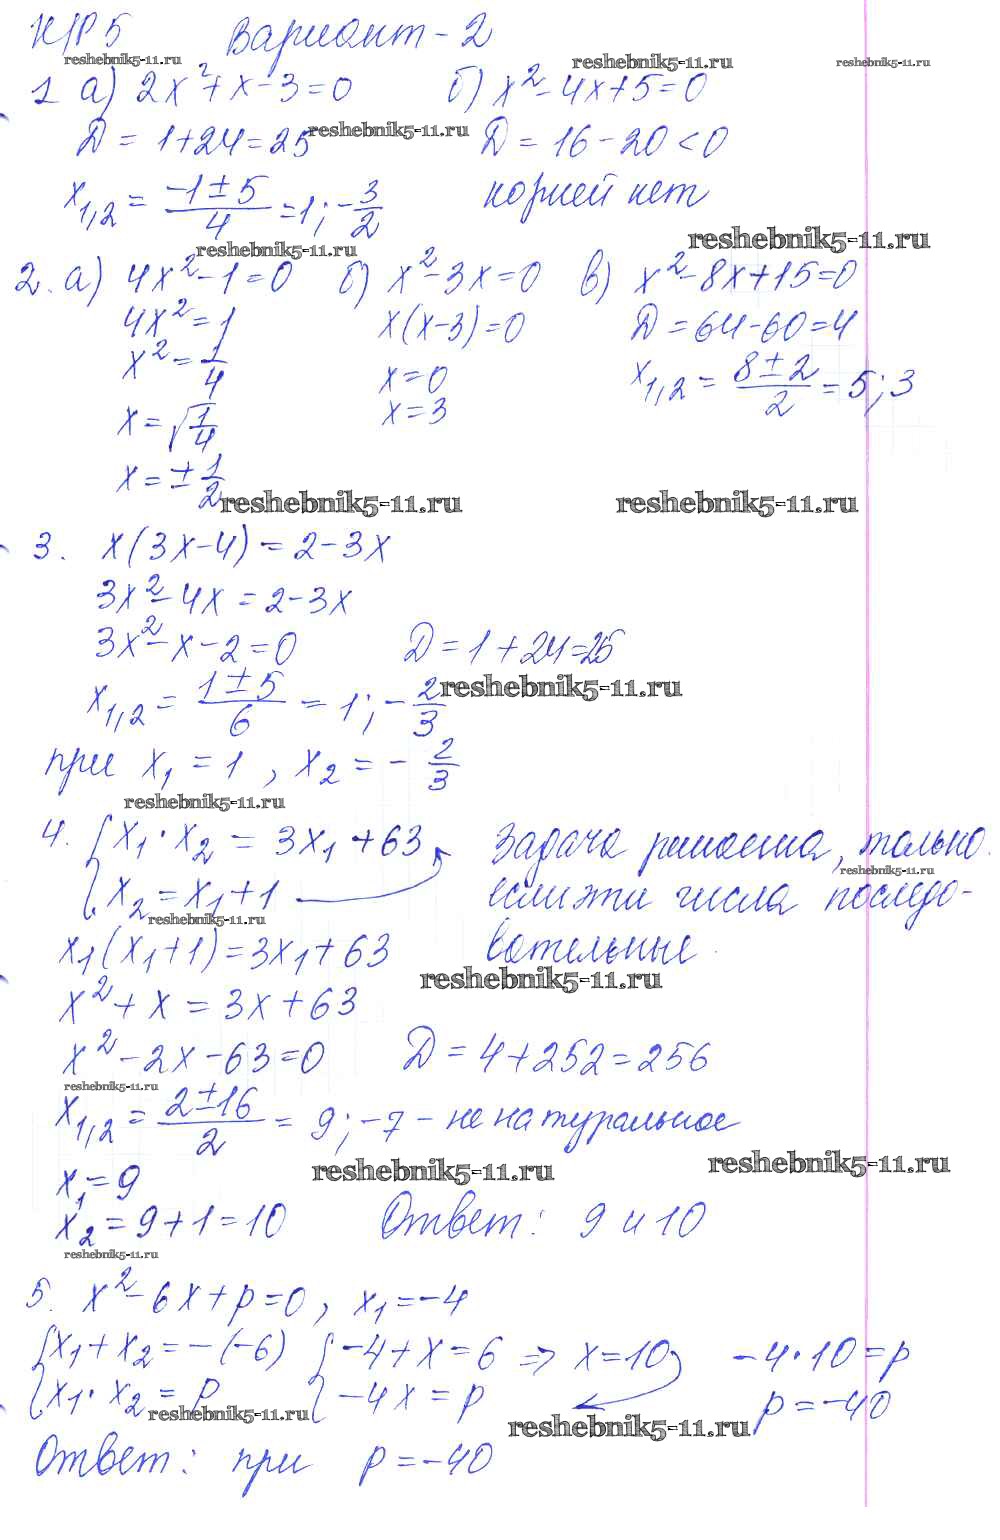 К/Р 5 Вариант - 2
reshebnik5-11.ru reshebnik5-11.ru reshebnik5-11.ru
1 а) 2x² + x - 3 = 0 б) x² - 4x + 5 = 0
Д = 1 + 24 = 25 reshebnik5-11.ru Д = 16 - 20 < 0
x₁,₂ = (-1 ± 5)/4 = 1; -3/2 корней нет
reshebnik5-11.ru reshebnik5-11.ru
2. а) 4x² - 1 = 0 б) x² - 3x = 0 в) x² - 8x + 15 = 0
4x² = 1 x(x-3) = 0 Д = 64 - 60 = 4
x² = 1/4 x = 0 x₁,₂ = (8 ± 2)/2 = 5; 3
x = √(1/4) x = 3
x = ± 1/2
reshebnik5-11.ru reshebnik5-11.ru
3. x(3x-4) = 2 - 3x
3x² - 4x = 2 - 3x
3x² - x - 2 = 0 Д = 1 + 24 = 25
x₁,₂ = (1 ± 5)/6 = 1; -2/3 reshebnik5-11.ru
при x₁ = 1, x₂ = -2/3
reshebnik5-11.ru
4. { x₁ · x₂ = 3x₁ + 63 Задача решаема, только
reshebnik5-11.ru
x₂ = x₁ + 1 если эти числа последо-
reshebnik5-11.ru
x₁(x₁+1) = 3x₁ + 63 вательные
reshebnik5-11.ru
x² + x = 3x + 63
x² - 2x - 63 = 0 Д = 4 + 252 = 256
reshebnik5-11.ru
x₁,₂ = (2 ± 16)/2 = 9; -7 - не натуральное
reshebnik5-11.ru reshebnik5-11.ru
x₁ = 9
x₂ = 9 + 1 = 10 Ответ: 9 и 10
reshebnik5-11.ru
5. x² - 6x + p = 0, x₁ = -4
{ x₁ + x₂ = -(-6) { -4 + x = 6 => x = 10 -4 · 10 = p
x₁ · x₂ = p -4x = p p = -40
reshebnik5-11.ru reshebnik5-11.ru
Ответ: при p = -40